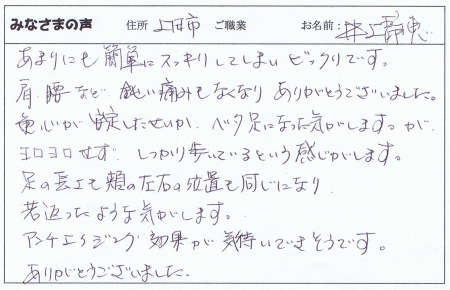 みなさまの声 住所 上田市 ご職業 お名前: 井上
あまりにも簡単にスッキリしてしまいビックリです。
肩、腰など、鈍い痛みもなくなりありがとうございました。
重心が安定したせいか、ベタ足になった気がします。が、
ヨロヨロせず、しっかり歩いているという感じがします。
足の長さも頬の左右の位置も同じになり
若返ったような気がします。
アンチエイジング効果が気待いできそうです。
ありがとうございました。